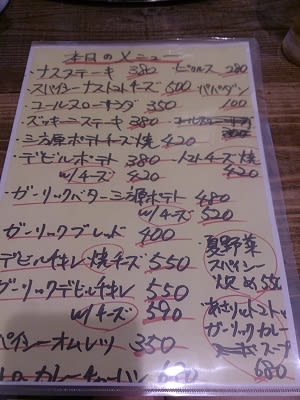 本日のメニュー
・ナスステーキ 380 ピクルス 280
・スパイシーナストマトチーズ 500 パパダン
・コールスローサラダ 350 100
・ズッキーニステーキ 380
・三方原ポテトチーズ焼 420
・デビルポテト 380 トマトチーズ焼
w/チーズ 420 420
・ガーリックバター三方原ポテト 480
w/チーズ 520
ガーリックブレッド 400
デビルチキン焼チーズ 550
ガーリックデビルチキン 550
w/チーズ 590
パイシーオムレツ 350
カレーチャーハン
夏野菜
スパイシー
炒め 550
あさりとトマト
ガーリックカレー
スープ
680